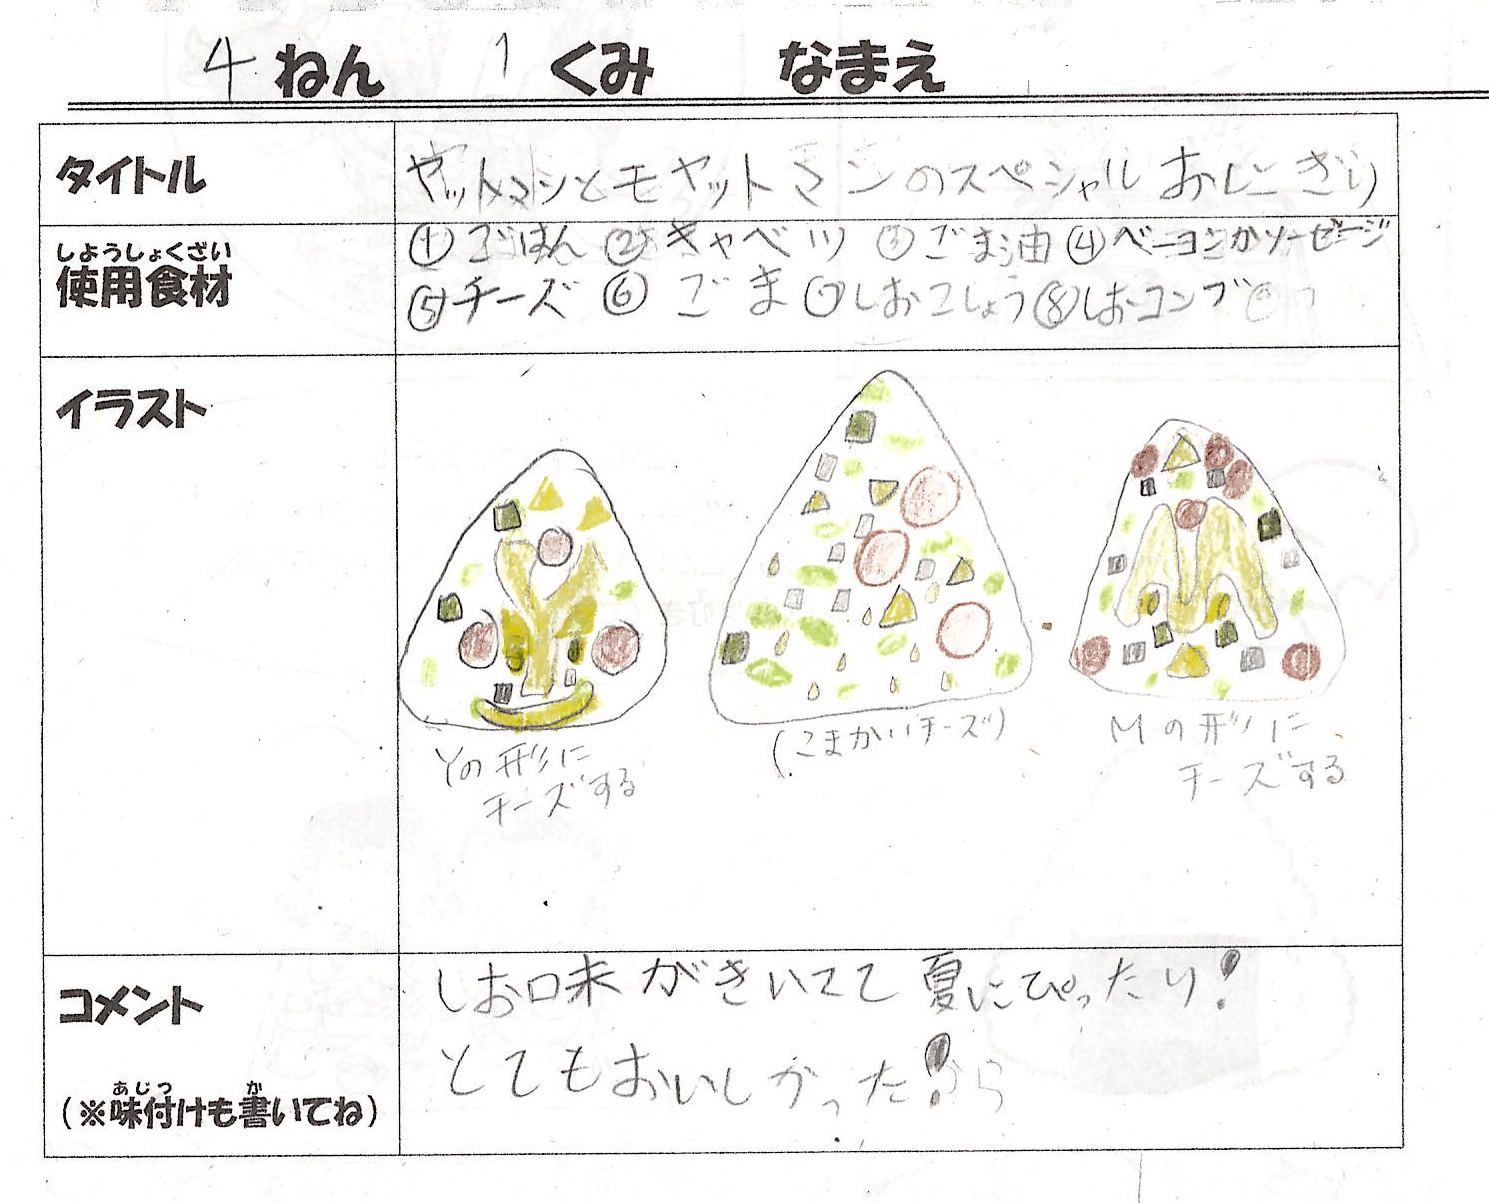 4 ねん 1 くみ なまえ
タイトル
ヤットマンとモヤットマンのスペシャルおにぎり
しようしょくざい
使用食材
①ごはん ②キャベツ ③ごま油 ④ベーコンかソーセージ
⑤チーズ ⑥ごま ⑦しおこしょう ⑧しおコンブ
イラスト
Yの形に
チーズする
(こまかいチーズ)
Mの形に
チーズする
コメント
しお味がきいてて夏にぴったり!
とてもおいしかった!
あじつ か
(※味付けも書いてね)